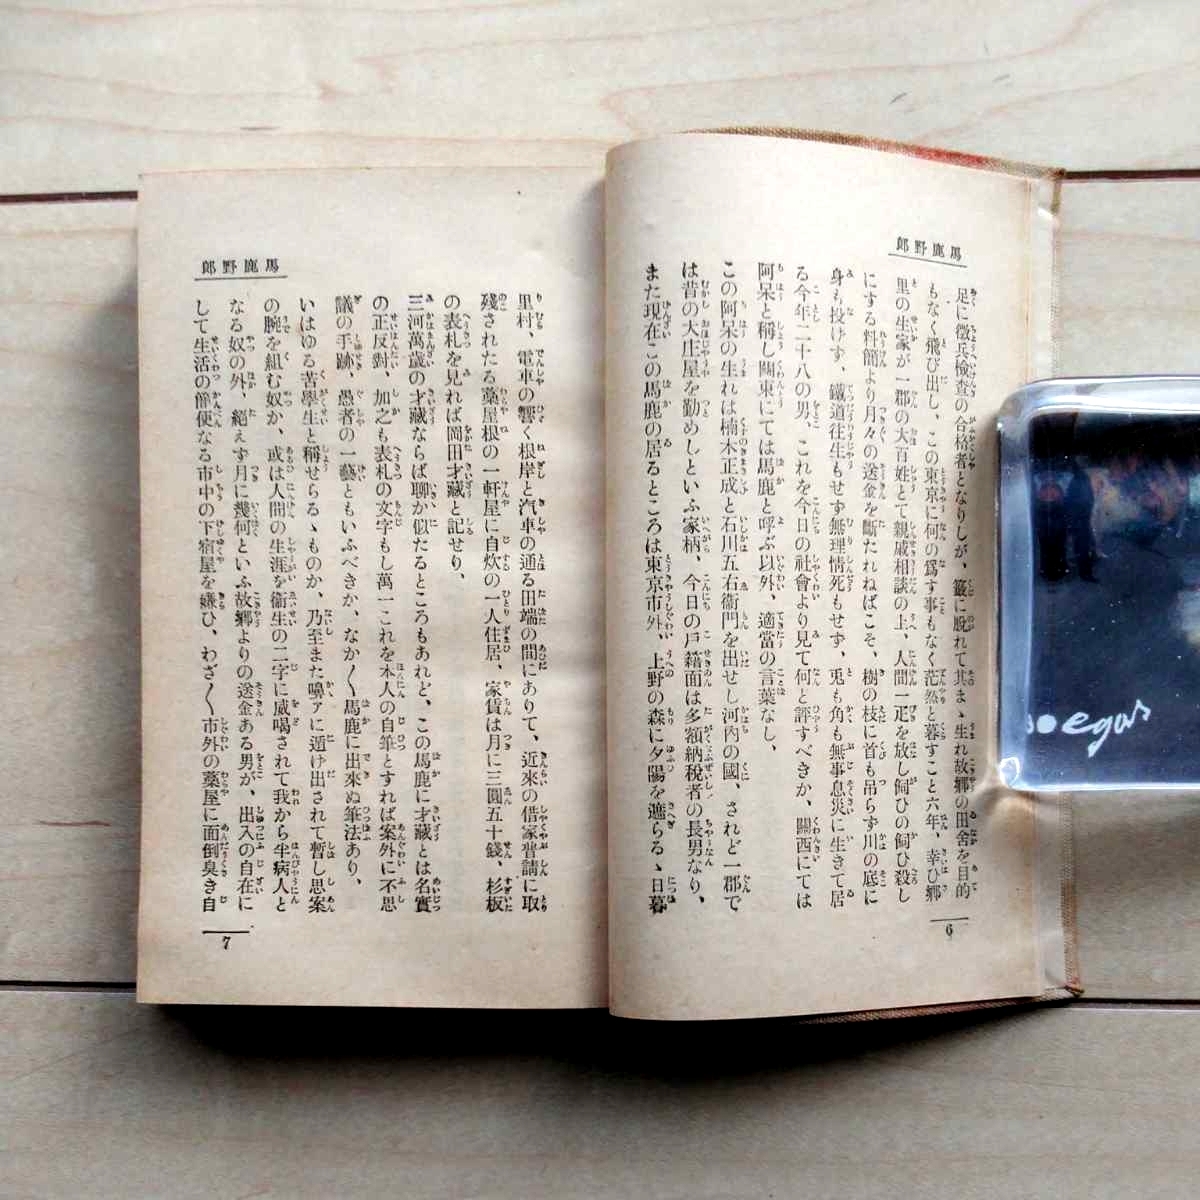 馬鹿野郎
足に徴兵檢査の合格者となりしが、籤に脱れて其まゝ生れ故郷の田舍を目的
もなく飛び出し、この東京に何の爲す事もなく茫然と暮すこと六年、幸ひ郷
里の生家が一郡の大百姓とて親戚相談の上、人間一疋を放し飼ひの飼ひ殺し
にする料簡より月々の送金を斷たれねばこそ、樹の枝に首も吊らず川の底に
身も投けず、鐵道往生もせず無理情死もせず、兎も角も無事息災に生きて居
る今年二十八の男、これを今日の社會より見て何と評すべきか、關西にては
阿呆と稱し關東にては馬鹿と呼ぶ以外、適當の言葉なし、
この阿呆の生れは楠木正成と石川五右衞門を出せし河内の國、されど一郡で
は昔の大庄屋を勤めしといふ家柄、今日の戸籍面は多額納税者の長男なり、
また現在この馬鹿の居るところは東京市外、上野の森に夕陽を遮らるゝ日暮
6
馬鹿野郎
里村、電車の響く根岸と汽車の通る田端の間にありて、近來の借家普請に取
殘されたる藁屋根の一軒屋に自炊の一人住居、家賃は月に三圓五十錢、杉板
の表札を見れば岡田才藏と記せり、
三河萬歳の才藏ならば聊か似たるところもあれど、この馬鹿に才藏とは名實
の正反對、加之も表札の文字もし萬一これを本人の自筆とすれば案外に不思
議の手跡、愚者の一藝ともいふべきか、なか〳〵馬鹿に出來ぬ筆法あり、
いはゆる苦學生と稱せらるゝものか、乃至また嚊ァに遁け出されて暫し思案
の腕を組む奴か、或は人間の生涯を衞生の二字に威喝されて我から半病人と
なる奴の外、絕えず月に幾何といふ故郷よりの送金ある男が、出入の自在に
して生活の簡便なる市中の下宿屋を嫌ひ、わざ〳〵市外の藁屋に面倒臭き自
7
egas